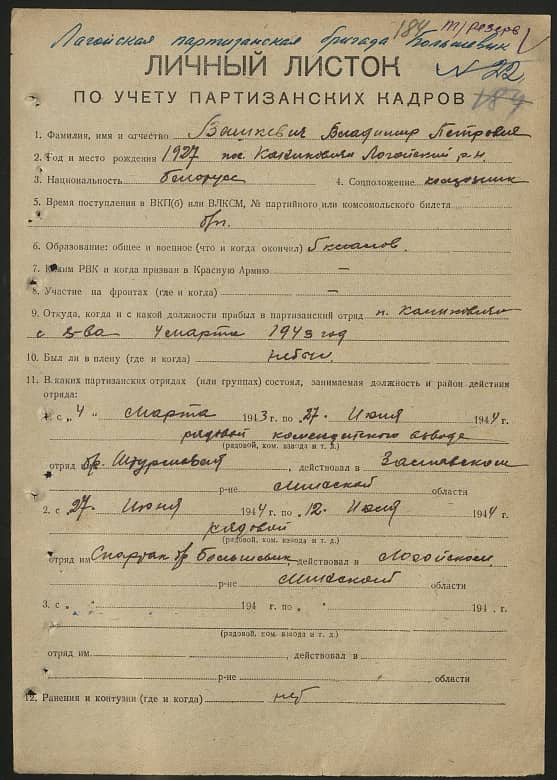 184 т/резерв
Лагойская партизанская бригада Большевик
ЛИЧНЫЙ ЛИСТОК № 22
ПО УЧЕТУ ПАРТИЗАНСКИХ КАДРОВ 184
1. Фамилия, имя и отчество Вашкевич Владимир Петрович
2. Год и место рождения 1927 Логойский р-н
3. Национальность белорусс 4. Соцположение
5. Время поступления в ВКП(б) или ВЛКСМ, № партийного или комсомольского билета
б/п.
6. Образование: общее и военное (что и когда окончил) 5 классов.
7. Каким РВК и когда призван в Красную Армию —
8. Участие на фронтах (где и когда) —
9. Откуда, когда и с какой должности прибыл в партизанский отряд
4 марта 1943 год
10. Был ли в плену (где и когда) не был
11. В каких партизанских отрядах (или группах) состоял, занимаемая должность и район действия
отряда:
1. с „4 „ марта 1943 г. по „27„ июня 1944 г.
рядовой комендантского взвода
(рядовой, ком. взвода и т. д.)
отряд бр. Штурмовая, действовал в Заславском
р-не Минской области
2. с „27„ июня 1944 г. по „12„ июля 1944 г.
рядовой
(рядовой, ком. взвода и т. д.)
отряд им Спартак бр Большевик, действовал в Логойском
р-не Минской области
3. с „ „ 194 г. по „ „ 194 г.
(рядовой, ком. взвода и т. д.)
отряд им. , действовал в
р-не области
12. Ранения и контузии (где и когда) нет